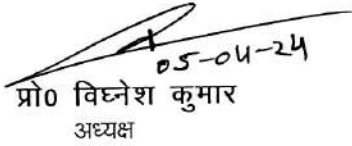 05-04-24
प्रो0 विघ्नेश कुमार
अध्यक्ष